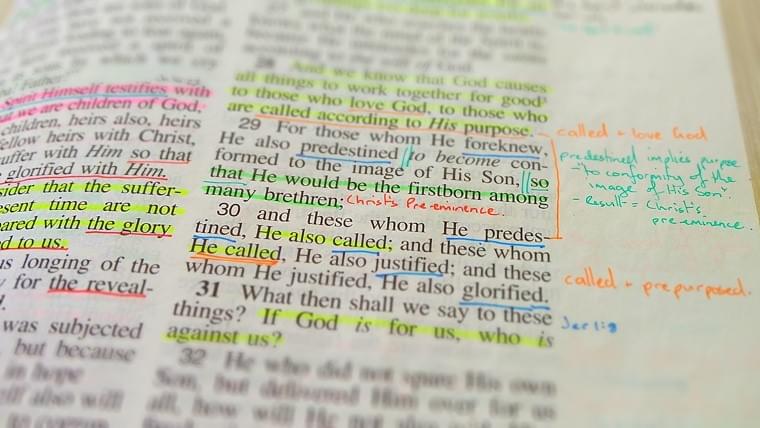 Spirit Himself testifies with
we are children of God,
children, heirs also, heirs
fellow heirs with Christ,
suffer with Him so that
glorified with Him.
sider that the suffer-
sent time are not
ared with the glory
d to us.
us longing of the
for the reveal-
was subjected
but because
in hope
28 And we know that God causes
all things to work together for good
to those who love God, to those who
are called according to His purpose.
29 For those whom He foreknew,
He also predestined to become con-
formed to the image of His Son, so
that He would be the firstborn among
many brethren; Christ's Pre-eminence.
30 and these whom He predes-
tined, He also called; and these whom
He called, He also justified; and these
whom He justified, He also glorified.
31 What then shall we say to these
things? If God is for us, who is
against us?
32 He who did not spare His own
Son, but delivered Him over for us
all, how will He not also
called + love God
predestined implies purpose
- "to conformity of the
image of His Son".
- result = Christ's
pre-eminence.
called + prepurposed.
Jer 1:9